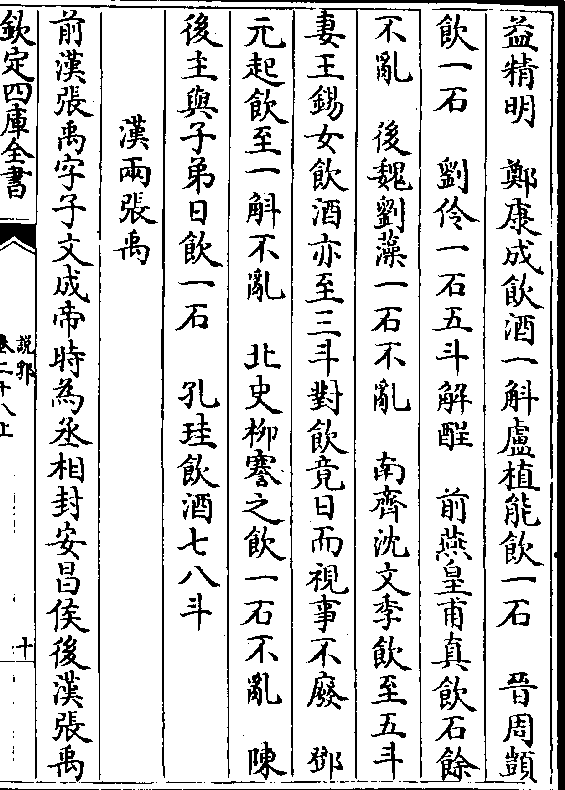 益精明　鄭康成飲酒一斛盧植能飲一石　晉周顗
飲一石　劉伶一石五斗解酲　前燕皇甫真飲石餘
不亂　後魏劉藻一石不亂　南齊沈文季飲至五斗
妻王錫女飲酒亦至三斗對飲竟日而視事不廢　鄧
元起飲至一斛不亂　北史柳謇之飲一石不亂　陳
後主與子弟日飲一石　孔珪飲酒七八斗
漢兩張禹
前漢張禹字子文成帝時為丞相封安昌侯後漢張禹
欽定四庫全書
說郛
卷二十八上
十